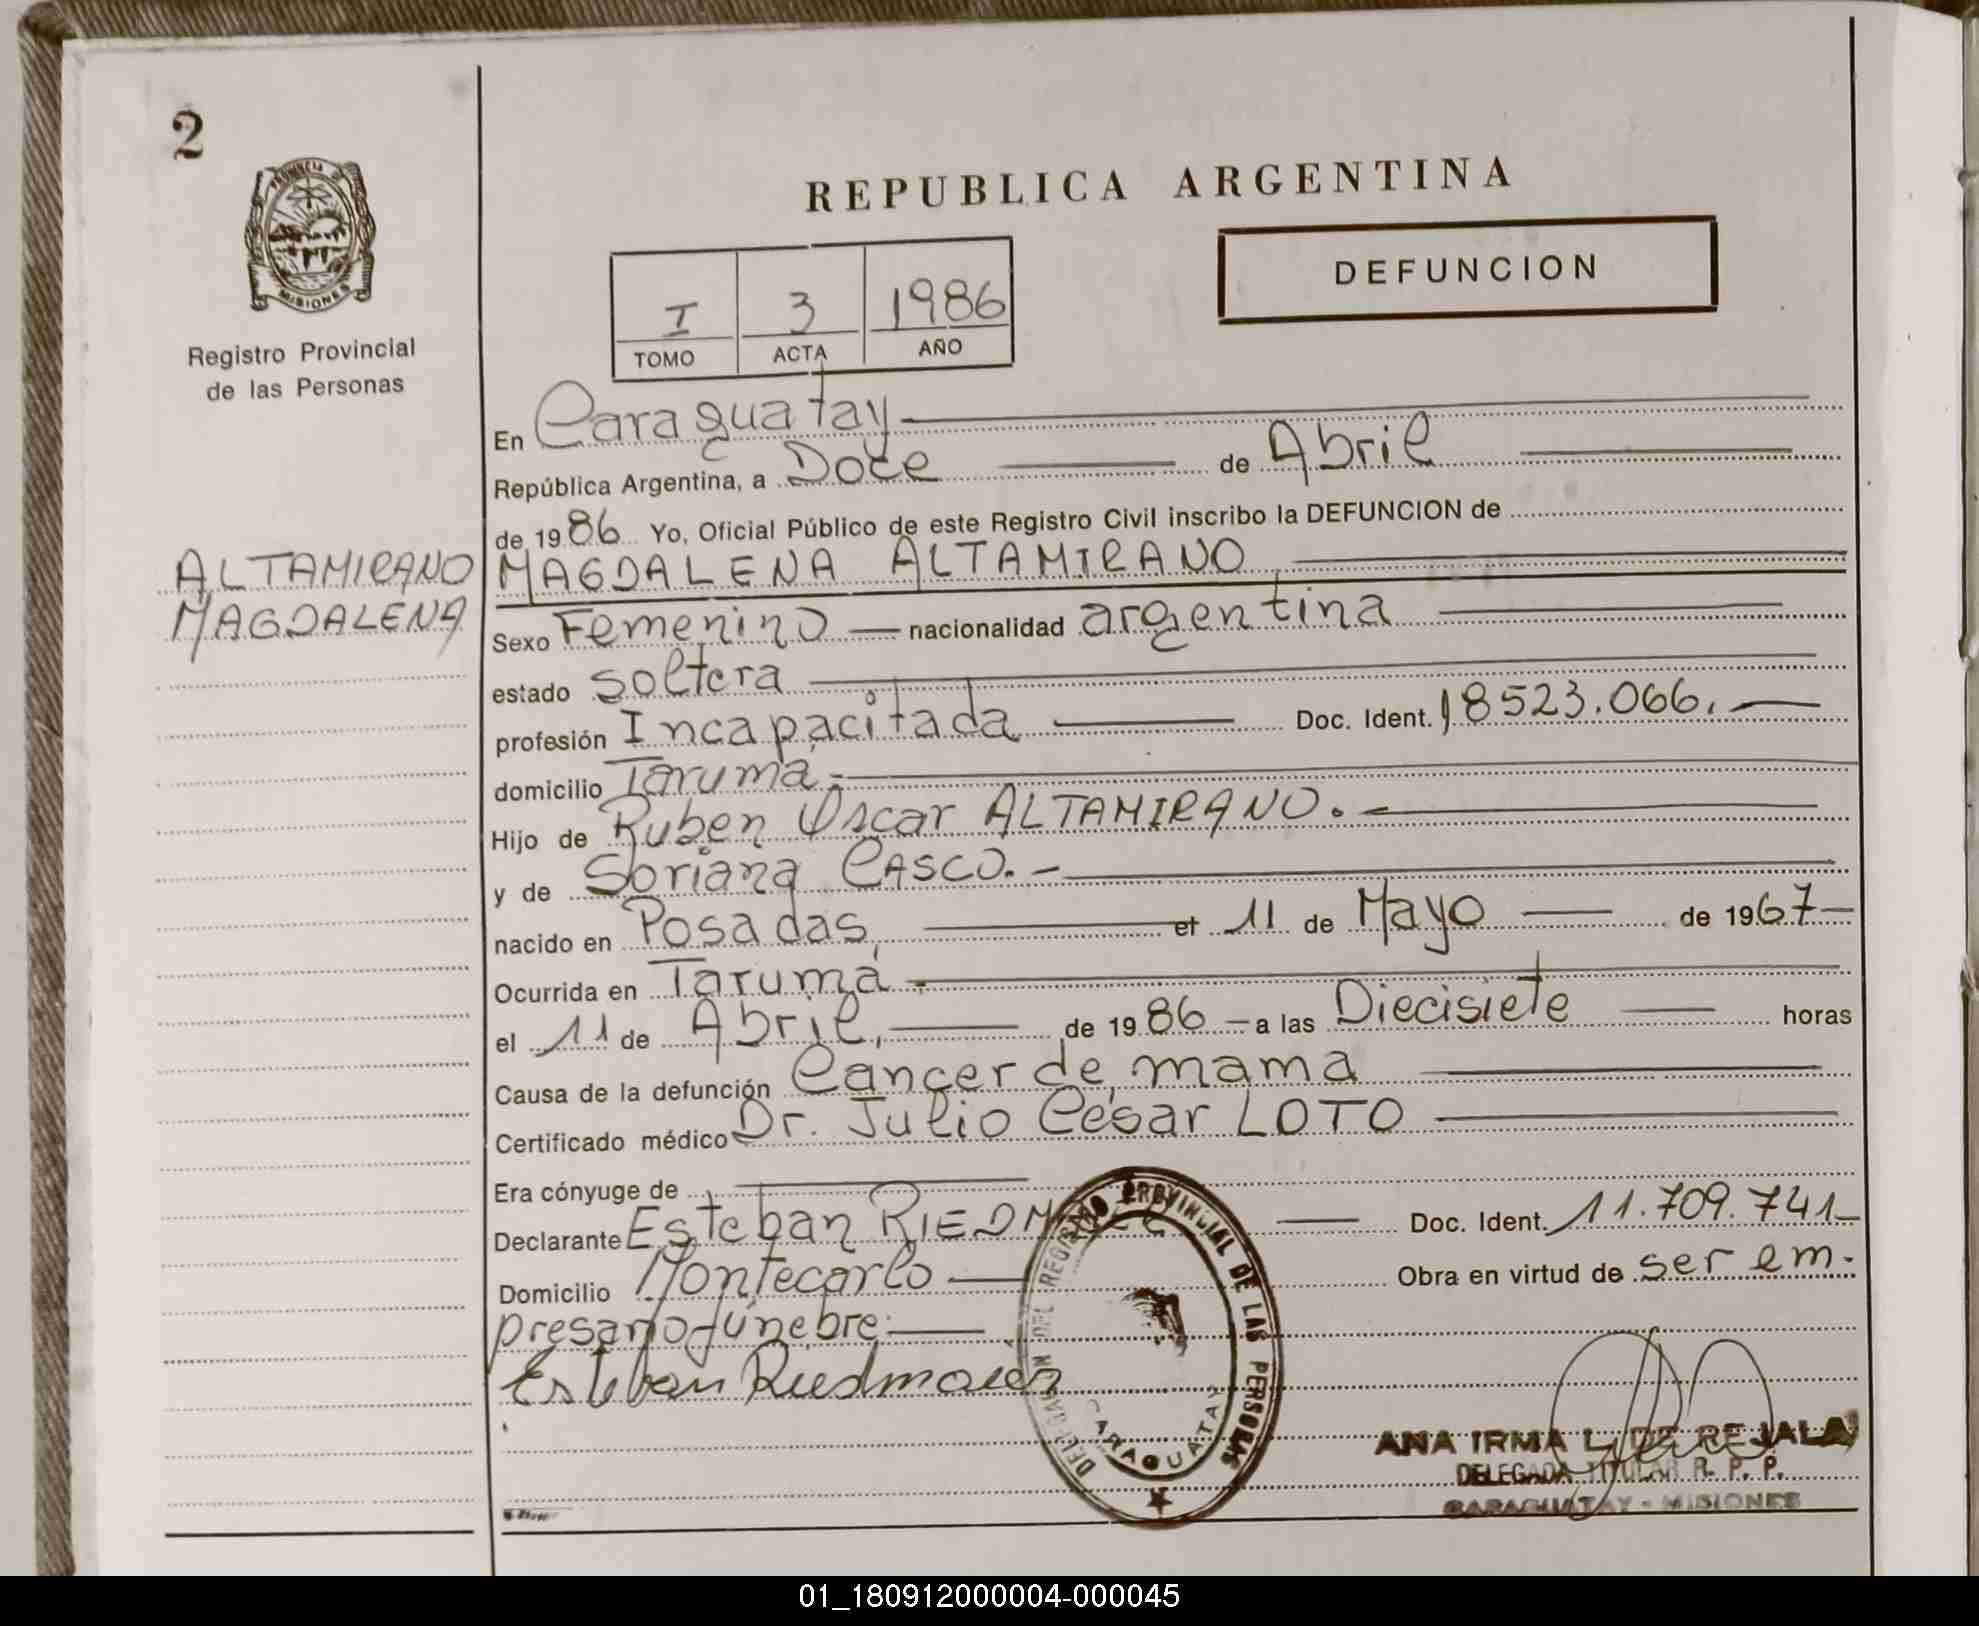 2
PROVINCIA DE
MISIONES
Registro Provincial
de las Personas
ALTAMIRANO
MAGDALENA
REPUBLICA ARGENTINA
DEFUNCION
I 3 1986
TOMO ACTA AÑO
En Caraguatay
República Argentina, a Doce de Abril
de 1986 Yo, Oficial Público de este Registro Civil inscribo la DEFUNCION de
MAGDALENA ALTAMIRANO
Sexo Femenino nacionalidad argentina
estado soltera
profesión Incapacitada Doc. Ident. 18523.066.
domicilio Tarumá
Hijo de Ruben Oscar ALTAMIRANO.
y de Soriana CASCO.-
nacido en Posadas, el 11 de Mayo de 1967
Ocurrida en Tarumá
el 11 de Abril, de 1986 a las Diecisiete horas
Causa de la defunción Cancer de mama
Certificado médico Dr. Julio César LOTO
Era cónyuge de
Declarante Esteban Doc. Ident. 11.709.741
Domicilio Montecarlo Obra en virtud de ser em-
presario fúnebre
Esteban
DELEGACION DEL REGISTRO PROVINCIAL DE LAS PERSONAS
CARAGUATAY
ANA IRMA L. DE REJALA
DELEGADA TITULAR R. P. P.
CARAGUATAY - MISIONES
01_180912000004-000045